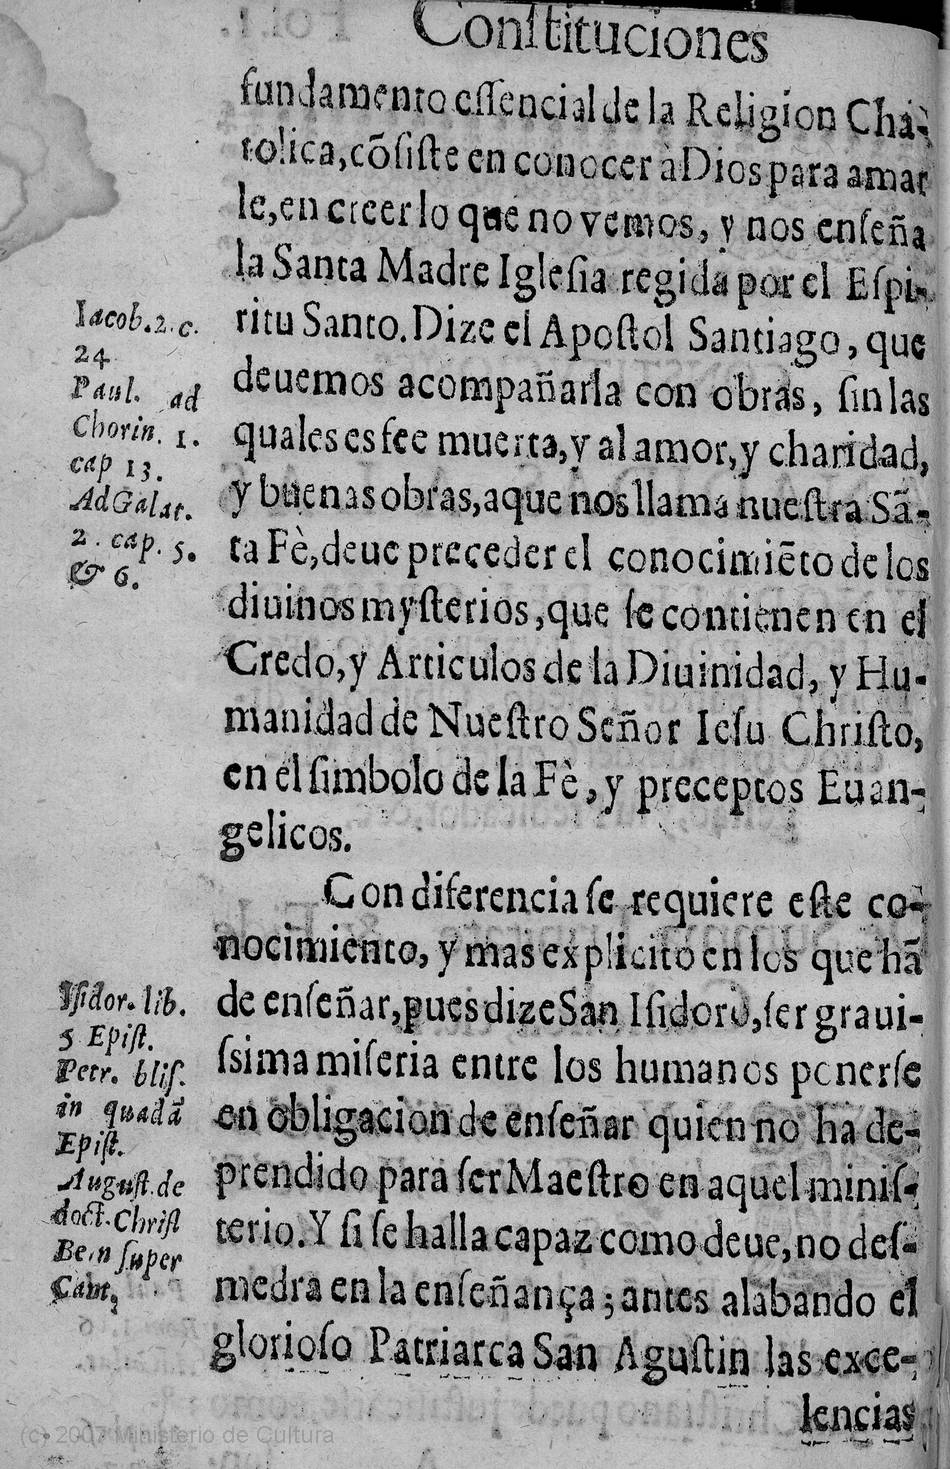 Conſtituciones
fundamento eſſencial de la Religion Cha-
tolica, cõſiſte en conocer à Dios para amar
le, en creer lo que no vemos, y nos enſeña
la Santa Madre Igleſia regida por el Eſpi-
ritu Santo. Dize el Apoſtol Santiago, que
deuemos acompañarla con obras, ſin las
quales es fee muerta, y al amor, y charidad,
y buenas obras, aque nos llama nueſtra Sã-
ta Fè, deue preceder el conocimiẽto de los
diuinos myſterios, que ſe contienen en el
Credo, y Articulos de la Diuinidad, y Hu-
manidad de Nueſtro Señor Ieſu Chriſto,
en el ſimbolo de la Fè, y preceptos Euan-
gelicos.
Con diferencia ſe requiere eſte co-
nocimiento, y mas explicito en los que hã
de enſeñar, pues dize San Iſidoro, ſer graui-
ſsima miſeria entre los humanos ponerſe
en obligacion de enſeñar quien no ha de-
prendido para ſer Maeſtro en aquel miniſ-
terio. Y ſi ſe halla capaz como deue, no deſ-
medra en la enſeñança; antes alabando el
glorioſo Patriarca San Aguſtin las exce-
lencias
Iacob. 2. c.
24
Paul. ad
Chorin. 1.
cap 13.
Ad Galat.
2. cap. 5.
& 6.
Iſidor. lib.
5 Epiſt.
Petr. bliſ.
in quadã
Epiſt.
Auguſt. de
doct. Chriſt
Bern ſuper
Cant,
(c) 2007 Ministerio de Cultura